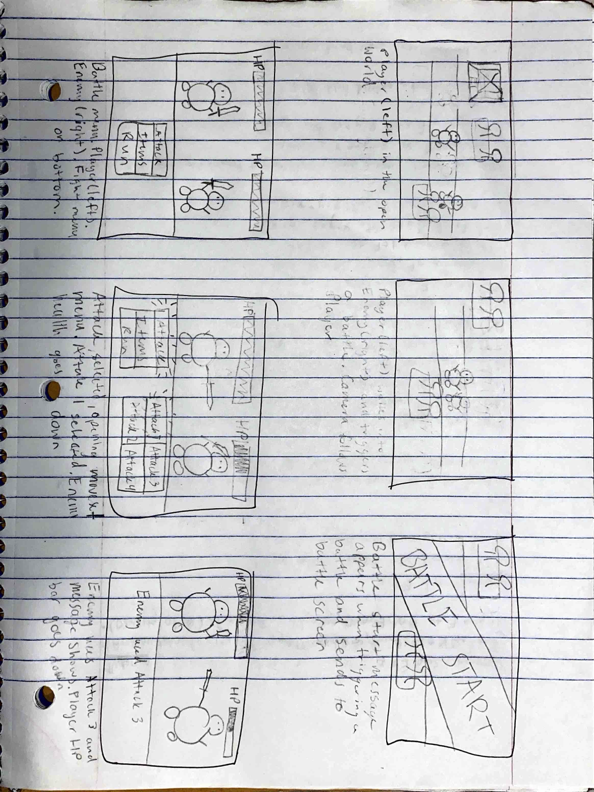 Player (left) in the open
world.
Player (left) runs into
Enemy (right) and triggers
a battle. Camera follows
Player
BATTLE
START
Battle start message
appears when triggering a
battle and sends to
battle screen
HP
HP
Attack
Items
Run
Battle menu Player (left).
Enemy (right). Fight menu
on bottom.
HP
HP
Attack
Items
Run
Attack 1
Attack 3
Attack 2
Attack 4
Attack selected, opening
menu. Attack 1 selected. Enemy
health goes down
HP
HP
Enemy used Attack 3
Enemy uses Attack 3 and
message shows. Player HP
bar goes down